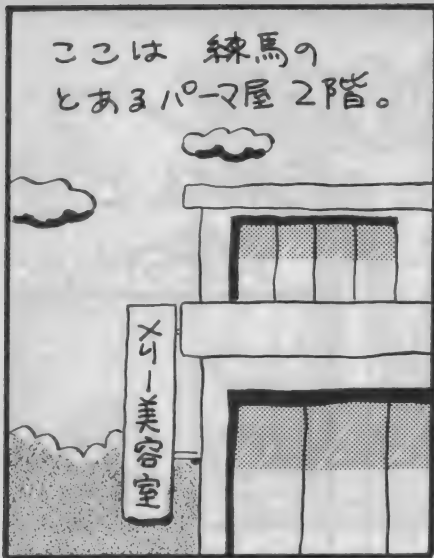 ここは 練馬の
とあるパーマ屋 2階。
メリー美容室